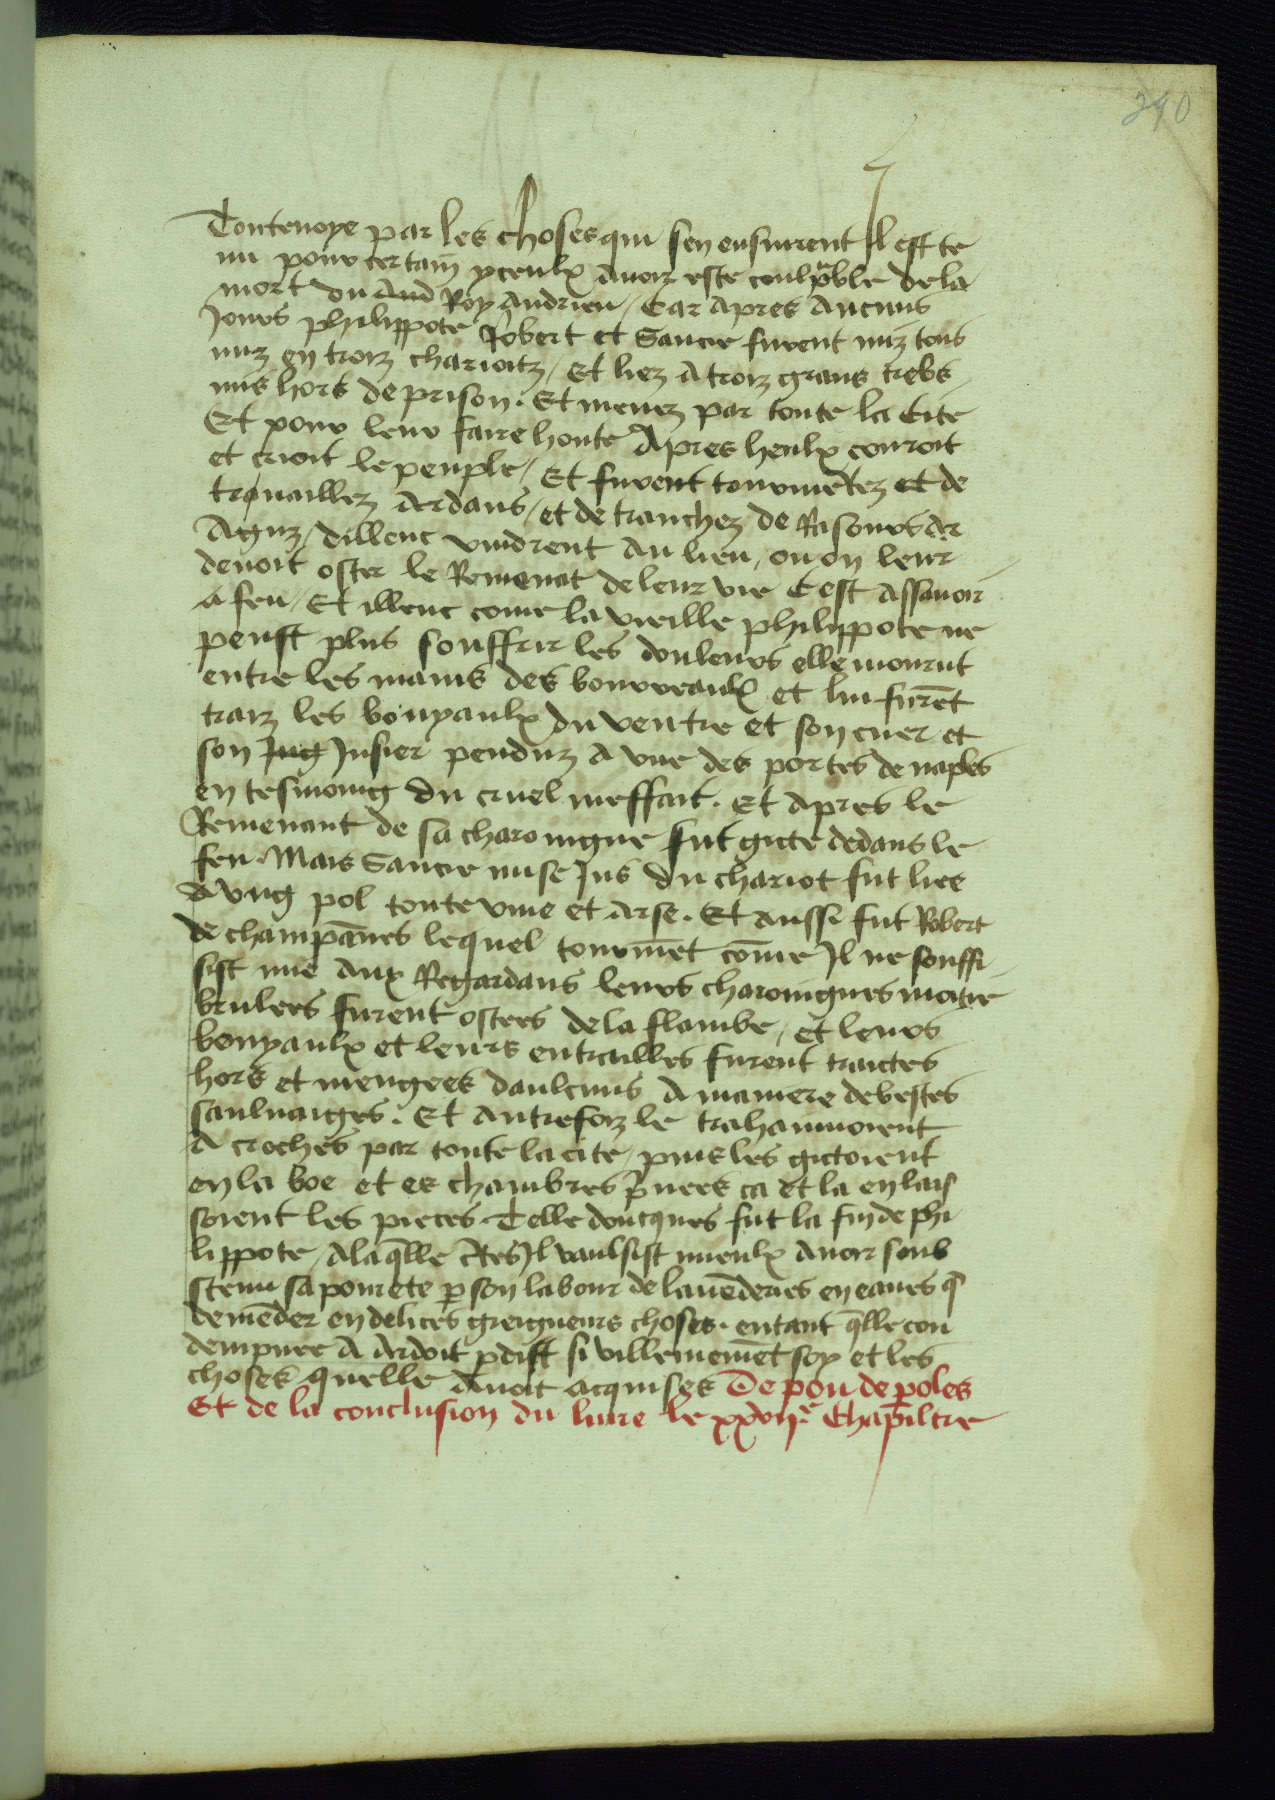 290
Toutevoye par les choses qui sen ensuirent Il est te
nu pour certain yceulx avoir este coulpable de la
mort du And Roy Andrieu / Car apres Aucuns
Jours philippote Robert et Sance furent miz tous
nuz en troiz chariotz / Et liez A troiz grans trebs
mis hors de prison . Et menez par toute la Cite
Et pour leur faire honte Apres heulx couroit
et crioit le peuple / Et furent tourmētez et de
travaillez Ardans / et de tranchez de Rasours
Aguz / dillenc vindrent au lieu / ou on leur
devoit oster le Remenāt de leur vie Cest assavoir
a feu / Et illenc come la vieille philippote ne
peust plus souffrir les douleurs elle mourut
entre les mains des bourreaulx et lui furēt
traiz les bouyaulx du ventre et son cuer et
son Jug Jusier penduz a vne des portes de naples
en tesmoing du cruel meffait . Et apres le
Remenant de sa charoingne fut gicte dedans le
feu . Mais Sance mise Jus du chariot fut liee
a vng pol toute vive et Arse . Et aussi fut Robert
de champānes lequel tourmēt cōme Il ne souffi
sist mie Aux Regardans leurs charoingnes
brulees furent ostees de la flambe / et leurs
bouyaulx et leurs entrailles furent traictes
hors et mengees daulcuns A maniere de bestes
saulvaiges . Et autrefoiz le trahainnoient
A croches par toute la cite / puis les gictoient
en la boe et es chambres p̄vees ca et la en lais
soient les pieces . Telle doncques fut la fin de phi
lippote / A laq̄lle c̄tes Il vaulsist mieulx avoir soub
stenu sa povrete p̄ son labour de lavēderies en eaues q̄
demēder en delices greigneurs choses . entant q̄lle con
dempnee A Ardoit p̄dist si villemēment soy et les
choses quelle avoit acquises De pou de p̄oles
Et de la conclusion du livre le xxvij.e Chapiltre